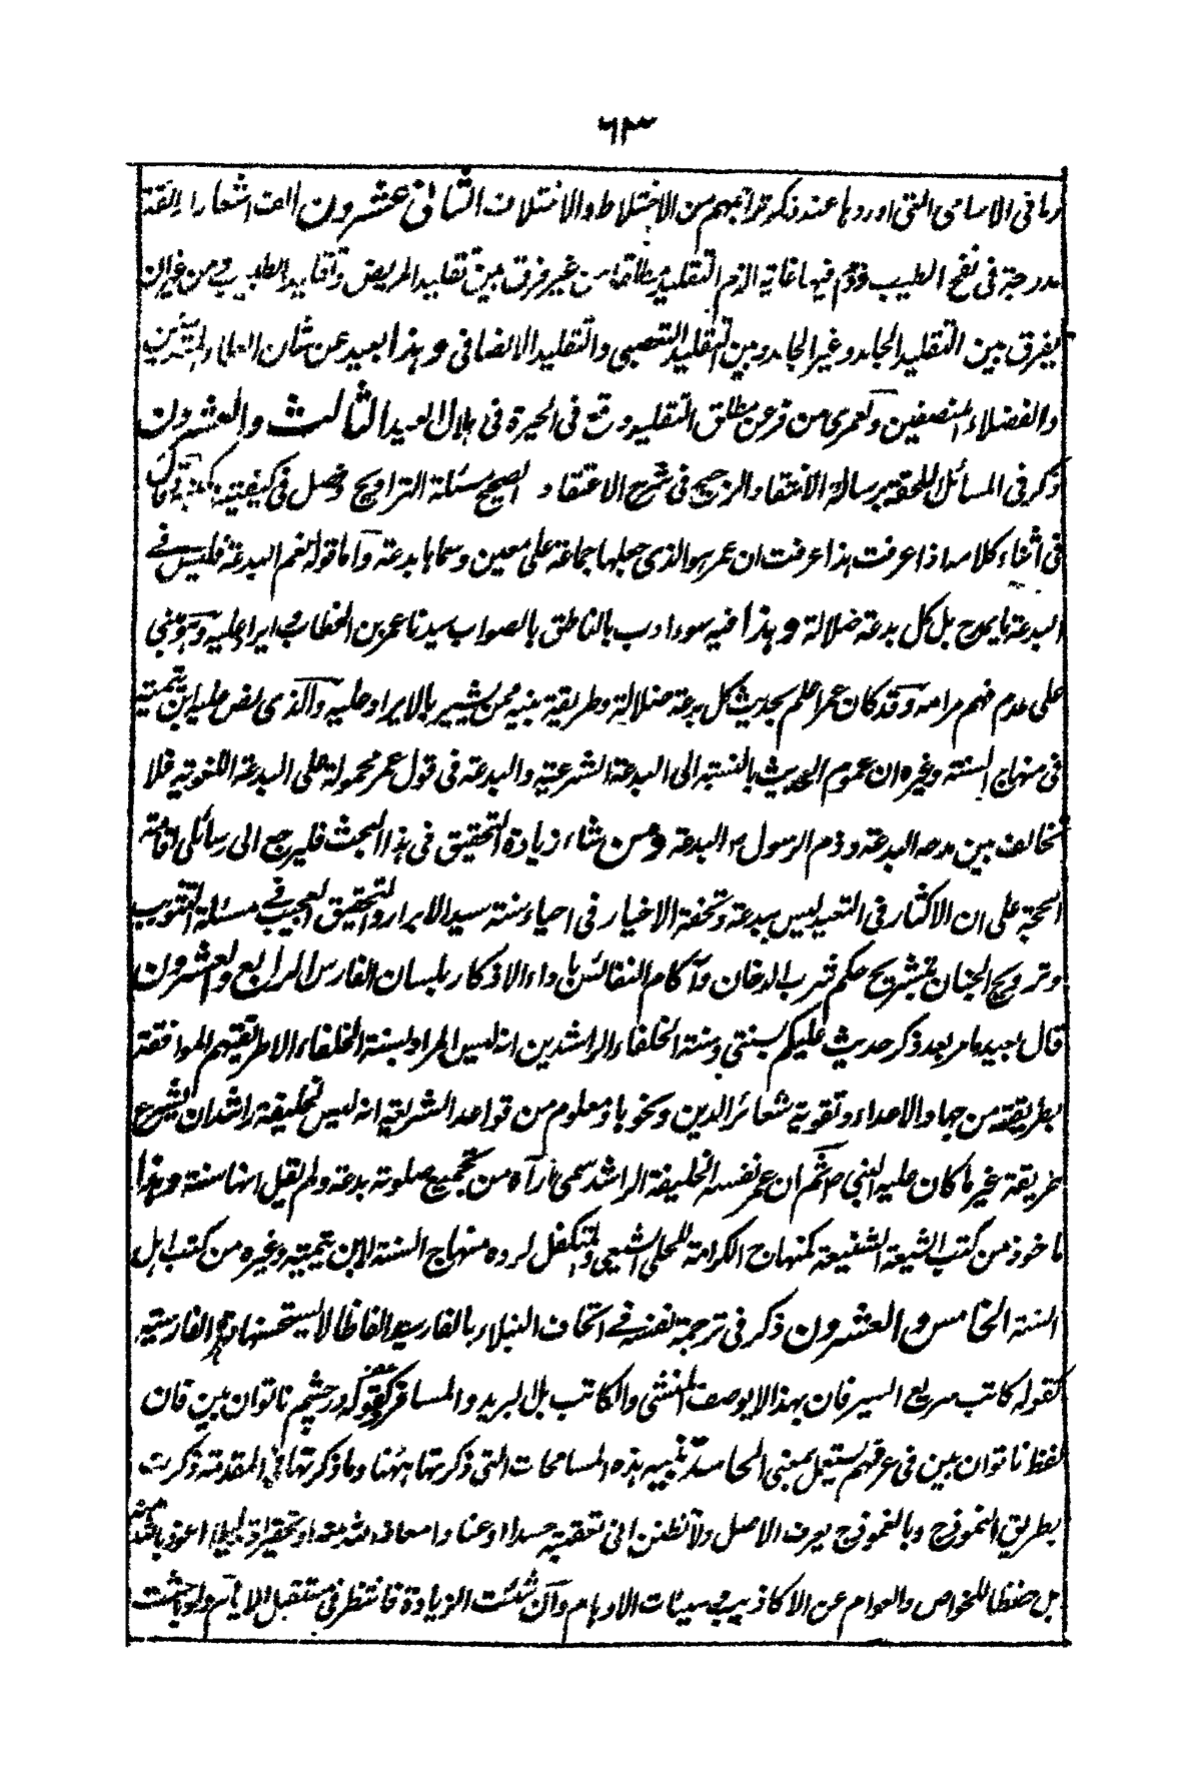 ٦٣
ما فى الاسامى التى اوردها عند ذكر تراجمهم من الاختلاط والاختلاف الثانى عشرون الف اشعارا رائقة
مدرجة فى نفح الطيب وذم فيها غاية الذم التقليد مطلقا من غير فرق بين تقليد المريض وتقليد الطبيب من غير ان
يفرق بين التقليد الجامد وغير الجامد وبين التقليد التعصبى والتقليد الانصافى وهذا بعيد عن شان العلماء المتدينين
والفضلاء المنصفين ولعمرى من فر عن مطلق التقليد وقع فى الحيرة فى هلال العيد الثالث والعشرون
ذكر فى المسائل الملحقة برسالة الانتقاد الرجيح فى شرح الاعتقاد الصحيح مسئلة التراويح وفصل فى كيفيته قال
فى اثناء كلامه اذا عرفت هذا عرفت ان عمر هو الذى جعلها جماعة على معين وسماها بدعة واما قوله نعم البدعة فليس فى
البدعة ما يمدح بل كل بدعة ضلالة وهذا فيه سوء ادب بالناطق بالصواب سيدنا عمر بن الخطاب ايراد عليه وهو مبنى
على عدم فهم مرامه وقد كان عمر اعلم بحديث كل بدعة ضلالة وطريقة نبيه ممن يشير بالايراد عليه والذى نص عليه ابن تيمية
فى منهاج السنة وغيره ان عموم الحديث بالنسبة الى البدعة الشرعية والبدعة فى قول عمر محمولة على البدعة اللغوية فلا
تخالف بين مدحه البدعة وذم الرسول ﷺ البدعة ومن شاء زيادة التحقيق فى هذا المبحث فليرجع الى رسائلى اقامة
الحجة على ان الاكثار فى التعبد ليس ببدعة وتحفة الاخيار فى احياء سنة سيد الابرار والتحقيق العجيب فى مسئلة التثويب
وترويح الجنان بتشريح حكم شرب الدخان وآكام النفائس باداء الاذكار بلسان الفارس الرابع والعشرون
قال بعيد ما مر بعد ذكر حديث عليكم بسنتى وسنة الخلفاء الراشدين انه ليس المراد بسنة الخلفاء الا طريقتهم الموافقة
بطريقته من جهاد الاعداء وتقوية شعائر الدين ونحوها ومعلوم من قواعد الشريعة انه ليس لخليفة راشد ان يشرع
طريقة غير ما كان عليه النبى ثم ان عمر نفسه الخليفة الراشد سمى ما رآه من تجميع صلوته بدعة ولم يقل انها سنة وهذا
ماخوذ من كتب الشيعة الشنيعة كمنهاج الكرامة للحلى الشيعى والمتكفل لرده منهاج السنة لابن تيمية وغيره من كتب اهل
السنة الخامس والعشرون ذكر فى ترجمة نفسه فى اتحاف النبلاء بالفارسية الفاظا لا يستحسنها الفارسية
كقوله كاتب سريع السير فان بهذا لا يوصف المنشى والكاتب بل البريد والمسافر وكقوله در چشم ناتوان بين فان
لفظ ناتوان بين فى عرفهم يستعمل بمعنى الحاسد تنبيه هذه المسامحات التى ذكرتها ههنا وما ذكرتها فى المقدمة ذكرت
بطريق النموذج وبالنموذج يعرف الاصل ولا تظنن انى تعقبته حسدا او عنادا معاذ الله منه او تحقيرا اعوذ بالله منه
بل حفظا للخواص والعوام عن الاكاذيب وسيئات الاوهام وان شئت الزيادة فانتظر فى مستقبل الايام ولو باحثت